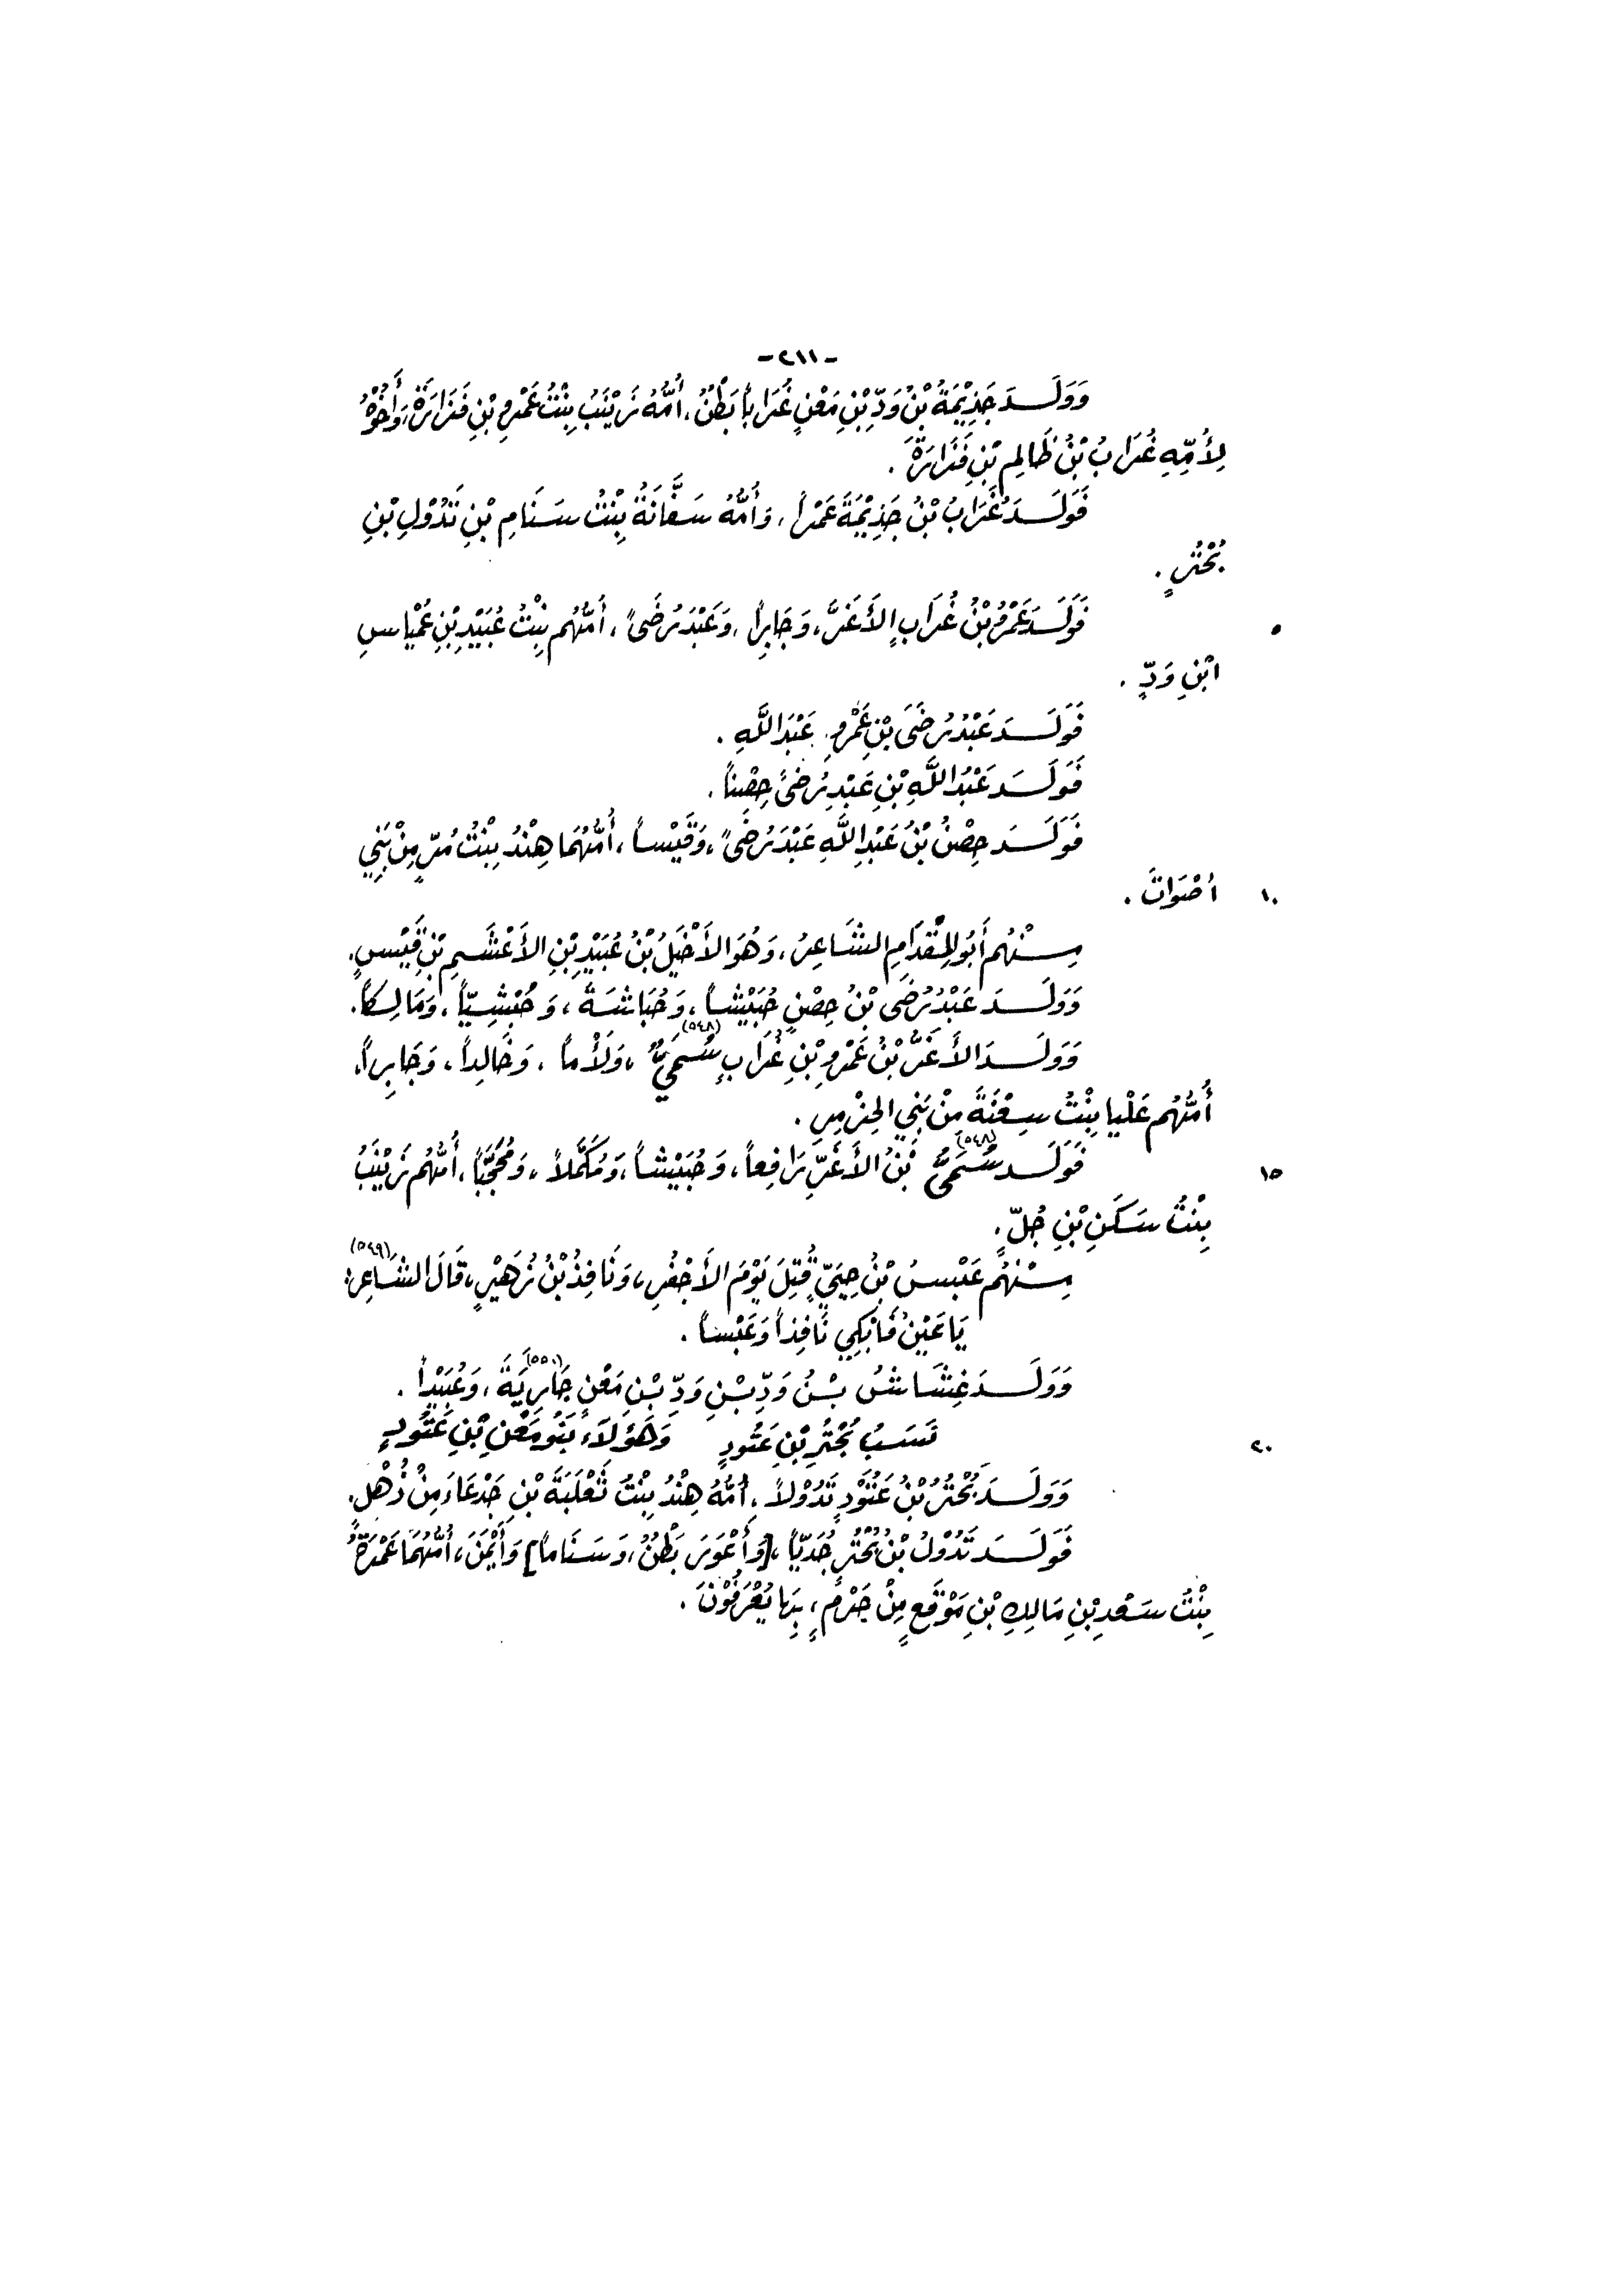 -٢١١-
وَوَلَـدَ جَذِيْمَةُ بْنُ وَدِّ بْنِ مَعْنٍ غُرَاباً بَطْنٌ، أُمُّهُ زَيْنَبُ بِنْتُ عَمْرِو بْنِ فَزَارَةَ، وَأَخُوْهُ
لِأُمِّهِ غُرَابُ بْنُ ظَالِمِ بْنِ فَزَارَةَ .
فَوَلَـدَ غُرَابُ بْنُ جَذِيْمَةَ عَمْراً، وَأُمُّهُ سَفَّانَةُ بِنْتُ سَنَامِ بْنِ تَدُوْلِ بْنِ
بُحْتُرٍ .
٥ فَوَلَـدَ عَمْرُو بْنُ غُرَابٍ الأَغَرَّ، وَجَابِراً، وَعَبْدَ رُضَىً، أُمُّهُم بِنْتُ عُبَيْدِ بْنِ عُمْيَاسِ
ابْنِ وَدٍّ .
فَوَلَـدَ عَبْدُ رُضَىَ بْنِ عَمْرٍو عَبْدَ اللَّهِ .
فَوَلَـدَ عَبْدُ اللَّهِ بْنِ عَبْدِ رُضَىً حِصْناً .
فَوَلَـدَ حِصْنُ بْنُ عَبْدِ اللَّهِ عَبْدَ رُضَىً، وَقَيْساً، أُمُّهُمَا هِنْدُ بِنْتُ مُرٍّ مِنْ بَنِي
١٠ أَصْوَاتَ .
مِـنْهُم أَبُو المِقْدَامِ الشَّاعِرُ، وَهُوَ الأَخْيَلُ بْنُ عُبَيْدِ بْنِ الأَعْشَمِ بْنِ قَيْسٍ.
وَوَلَـدَ عَبْدُ رُضَى بْنُ حِصْنٍ حُبَيْشاً، وَحُبَاشَةَ، وَحُبْشِيّاً، وَمَالِكاً.
وَوَلَـدَ الأَغَرُّ بْنُ عَمْرِو بْنِ غُرَابٍ سُمَيّ (٥٤٨)، وَلَأْماً، وَخَالِداً، وَجَابِراً،
أُمُّهُم عَلْيا بِنْتُ سِعْنَةَ مِنْ بَنِي الحِزْمِرِ .
١٥ فَوَلَـدَ سُمَيُّ (٥٤٨) بْنُ الأَغَرِّ رَافِعاً، وَحُبَيْشاً، وَمُكَمَّلاً، وَمُحَجَّبَاً، أُمُّهُم زَيْنَبُ
بِنْتُ سَكَنِ بْنِ جُلٍّ .
مِـنْهُم عَبْسُ بْنُ حِيَيٍّ قُتِلَ يَوْمَ الأَجْفُرِ، وَنَافِذُ بْنُ زُهَيْرٍ، قَالَ الشَّاعِرُ: (٥٤٩)
يَا عَيْنُ فَابْكِي نَافِذاً وَعَبْسَاً .
وَوَلَـدَ غِشَاشُ بْـنُ وَدِّ بْـنِ وَدِّ بْـنِ مَعْنٍ جَارِيَةَ (٥٥٠)، وَعُبَيْداً .
٢٠ نَسَبُ بُحْتُرِ بْنِ عَتُودٍ وَهَؤُلَاءِ بَنُو مَعْنِ بْنِ عَتُودٍ
وَوَلَـدَ بُحْتُرُ بْنُ عَتُوْدٍ تَدُوْلاً، أُمُّهُ هِنْدُ بِنْتُ ثَعْلَبَةَ بْنِ جَدْعَاءَ مِنْ ذُهْلٍ.
فَوَلَـدَ تَدُوْلُ بْنُ بُحْتُرٍ جُدَيّاً، [وَأَعْوَرَ بَطْنٌ، وَسَنَاماً] وَأَيْمَنَ، أُمُّهُمَا عَمْرَةُ
بِنْتُ سَعْدِ بْنِ مَالِكِ بْنِ مَوْقَعٍ مِنْ جَرْمٍ، بِهَا يُعْرَفُوْنَ .